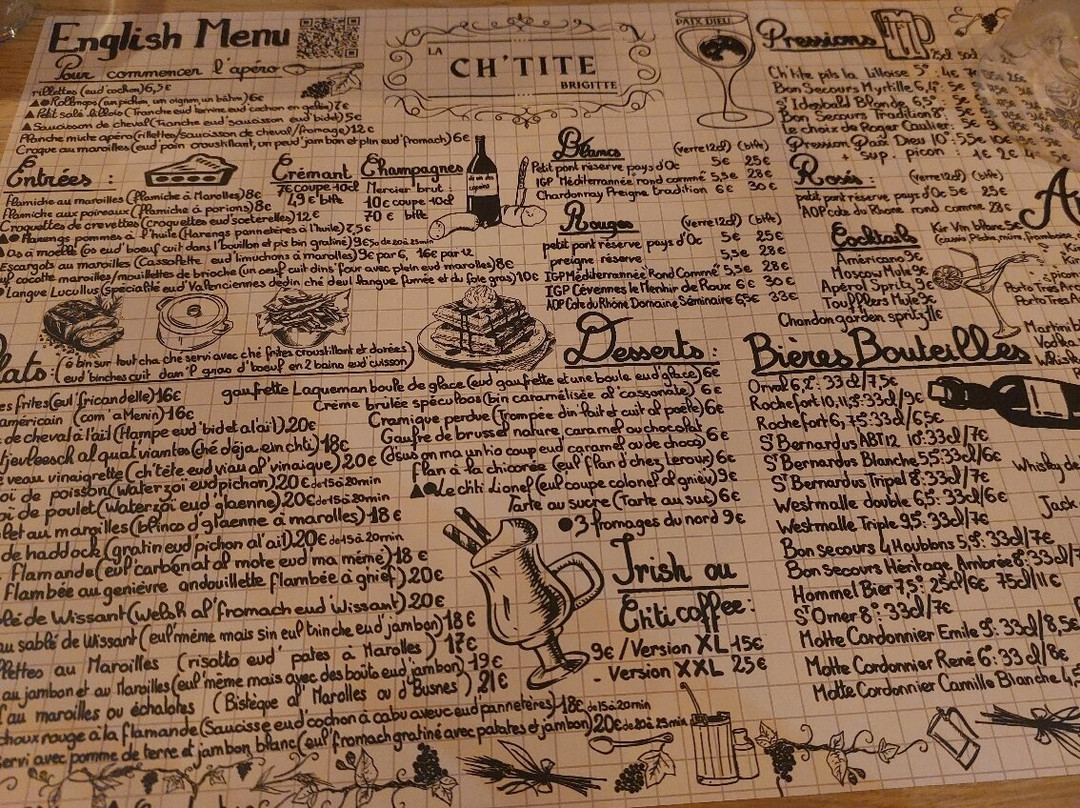 English Menu
Pour commencer l'apéro
rillettes (eud'cochon) 6,5€
▲●Rollmops (un pichon, un oignon, un bâhn) 6€
▲Petit salé lillois (Tranche eud'terrine eud'cochon en gelée) 7€
▲Saucisson de cheval (Tranche eud'saucisson eud'bidet) 5€
Planche mixte apéro (rillettes/saucisson de cheval/fromage) 12€
Croque au maroilles (eud'pain croustillant, un peud'jambon et plin eud'fromach) 6€
Entrées :
Flamiche au maroilles (flamiche à Marolles) 8€
Flamiche aux poireaux (flamiche à porions) 8€
Croquettes de crevettes (croquettes eud'saeterelles) 12€
▲●Harengs pommes à l'huile (Harengs pannetères à l'huile) 7,5€
▲Os à moelle (os eud'boeuf cuit dans l'bouillon et pis bin gratiné) 9€ 5o de 20 à 25min
Escargots au maroilles (Cassolette eud'limuchons à marolles) 9€ par 6, 16€ par 12
cocotte maroilles/mouillettes de brioche (un oeuf cuit dins'four avec plein eud marolles) 8€
Langue Lucullus (spécialité eud'Valenciennes dedin ché deul'langue fumée et du foie gras) 10€
Crémant
7€ coupe 10cl
49€ btlle
Champagnes
Mercier brut
10€ coupe 10cl
70€ btlle
LA
CH'TITE
BRIGITTE
Blancs (verre 12cl) (btlle)
Petit pont réserve pays d'Oc 5€ 25€
IGP Méditerrannée rond comme 5,5€ 28€
Chardonnay Preigne tradition 6€ 30€
Rouges (verre 12cl) (btlle)
petit pont réserve pays d'Oc 5€ 25€
preigne réserve 5,5€ 28€
IGP Méditerrannée Rond Comme 5,5€ 28€
IGP Cévennes le Menhir de Roux 6€ 30€
AOP Cote du Rhône Domaine Séminaire 6,5€ 33€
PAIX DIEU
Pressions
25cl
Ch'tite pils la Lilloise 5°: 4€
Bon Secours Myrtille 6,4°: 5€
St Idesbald Blonde 6,5°: 5€
Bon Secours Tradition 8°: 5€
Le choix de Roger Caulier: 5€
Pression Paix Dieu 10°: 5,5€
+ sup. picon : 1€ 2€
Rosés : (verre 12cl) (btlle)
petit pont réserve pays d'Oc 5€ 25€
AOP Cote du Rhone rond comme 28€
Cocktails
Américano 9€
Moscow Mule 9€
Apérol Spritz 9€
Toufflers Mule 9€
Chandon garden spritz 11€
Kir Vin blanc 5€
(cassis, Pêche, mûre, framboise,
Kir
Porto Très
Porto Très
Martini
Vodka
Whisky
Whisky de
Jack
lats : (é bin sur tout cha ché servi avec ché frites croustillant et dorées)
(eud'binches cuit dan'l'gras d'boeuf en 2 bains eud'cuisson)
es frites (eul'fricandelle) 16€
américain (com'a Menin) 16€
de cheval à l'ail (Hampe eud'bidet al'ail) 20€
tjevleesch al quat viantes (ché déja ein chti) 18€
veau vinaigrette (ch'tête eud'viau al'vinaique) 20€
oi de poisson (Waterzoï eud'pichon) 20€ de 15 à 20min
oi de poulet (Waterzoï eud'glaenne) 20€ de 15 à 20min
let au maroilles (blinco d'glaenne à marolles) 18€
de haddock (gratin eud'pichon al'ail) 20€ de 15 à 20min
Flamande (eul'carbonat al'mote eud'ma mémé) 18€
Flambée au genièvre andouillette flambée à gnief) 20€
lé de Wissant (Welsh al'fromach eud'Wissant) 20€
au sablé de Wissant (eul'même mais sin eul'trinche eud'jambon) 18€
lettes au Maroilles (risotto eud' pates à Marolles) 17€
au jambon et au Maroilles (eul'même mais avec des boûts eud'jambon) 19€
au maroilles ou échalotes (Bistèque al'Marolles ou d'Busnes) 21€
choux rouge à la flamande (Saucisse eud'cochon à cabu aveuc eud'pannetères) 18€ de 15 à 20min
servi avec pomme de terre et jambon blanc (eul'fromach gratiné avec patates et jambon) 20€ de 20 à 25min
Desserts :
gaufrette Laqueman boule de glace (eud'gaufrette et une boule eud'glace) 6€
Crème brulée spéculoos (bin caramélisée al'cassonate) 6€
Cramique perdue (Trompée din'lait et cuit al'poele) 6€
Gaufre de brussel nature, caramel ou chocolat
(d'sus on ma un tio coup eud'caramel ou de choco) 6€
Flan à la chicorée (eul'flan d'chez Leroux) 6€
▲●Le chti Lionel (eul'coupe colonel al'gniev) 9€
Tarte au sucre (Tarte au suc) 6€
●3 fromages du nord 9€
Irish ou
Chti coffee :
9€ / Version XL 15€
- Version XXL 25€
Bières Bouteilles
Orval 6,2°: 33cl/7,5€
Rochefort 10, 11,5°: 33cl/9€
Rochefort 6, 7,5°: 33cl/6,5€
St Bernardus ABT12 10°: 33cl/7€
St Bernardus Blanche 5,5: 33cl/6€
St Bernardus Tripel 8°: 33cl/7€
Westmalle double 6,5: 33cl/6€
Westmalle Triple 9,5: 33cl/7€
Bon secours 4 Houbbons 5,9°: 33cl/7€
Bon secours Héritage Ambrée 8°: 33cl/7
Hommel Bier 7,5°: 25cl/6€ 75cl/11€
St Omer 8°: 33cl/7€
Motte Cordonnier Emile 9°: 33cl/8,5€
Motte Cordonnier René 6°: 33cl/8€
Motte Cordonnier Camille Blanche 4,5